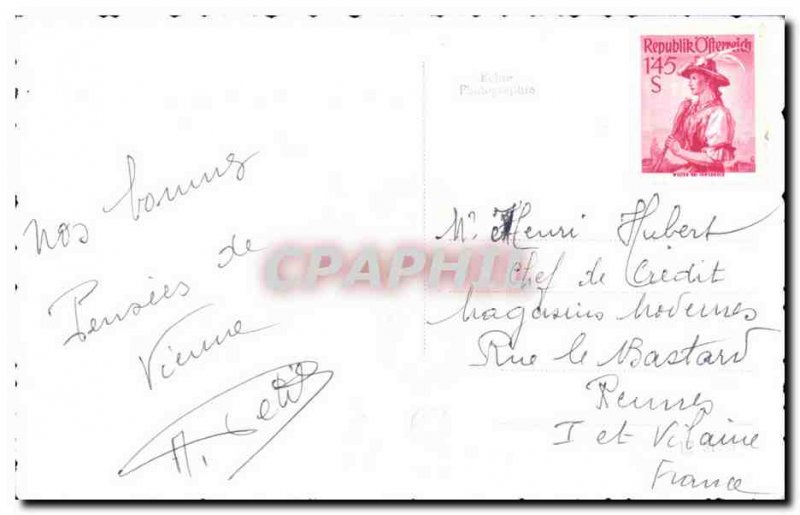 Nos bonnes
Pensées de
Vienne
Echte
Photographie
Republik Österreich
1'45
S
Mr Henri Hubert
Chef de Crédit
Magasins Modernes
Rue le Bastard
Rennes
I et Vilaine
France
CPAPHIL